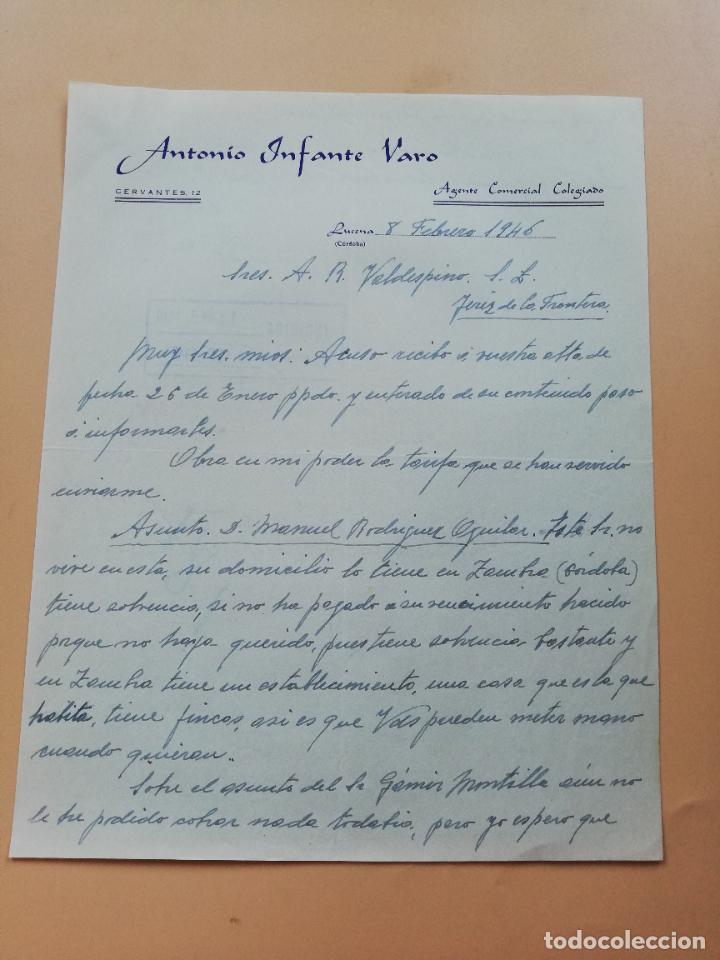 Antonio Infante Varo
CERVANTES, 12
Agente Comercial Colegiado
Lucena 8 Febrero 1946
(Córdoba)
Sres. A. R. Valdespino. S. L.
Jerez de la Frontera.
Muy Sres. mios: Acuso recibo á vuestra atta. de
fecha 26 de Enero ppdo. y enterado de su contenido paso
á informarles.
Obra en mi poder la tarifa que se han servido
enviarme.
Asunto. D. Manuel Rodriguez Aguilar. Este Sr. no
vive en esta, su domicilio lo tiene en Zambra (Córdoba)
tiene solvencia, si no ha pagado á su vencimiento ha cido
porque no haya querido, pues tiene solvencia bastante y
en Zambra tiene un establecimiento, una casa que es la que
habita, tiene fincas, asi es que Vds pueden meter mano
cuando quieran.
Sobre el asunto del Sr Gámir Montilla aún no
le he podido cobrar nada todabia, pero yo espero que
todocoleccion
todocoleccion.net